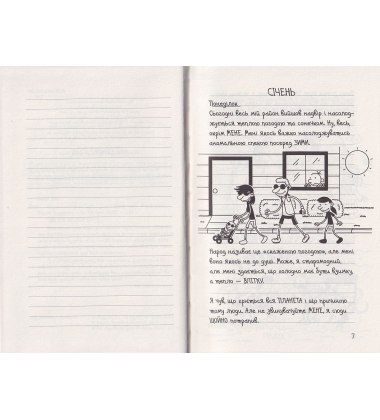 СІЧЕНЬ
Понеділок
Сьогодні весь мій район вийшов надвір і насолод-
жується теплою погодою та сонечком. Ну, весь,
окрім МЕНЕ. Мені якось важко насолоджуватись
аномальною спекою посеред ЗИМИ.
Народ називає це «скаженою погодою», але мені
вона якось не до душі. Може, я старомодний,
але мені здається, що холодно має бути взимку,
а тепло — ВЛІТКУ.
Я чув, що гріється вся ПЛАНЕТА і що причиною
тому люди. Але не звинувачуйте МЕНЕ, я сюди
ЩОЙНО потрапив.
7